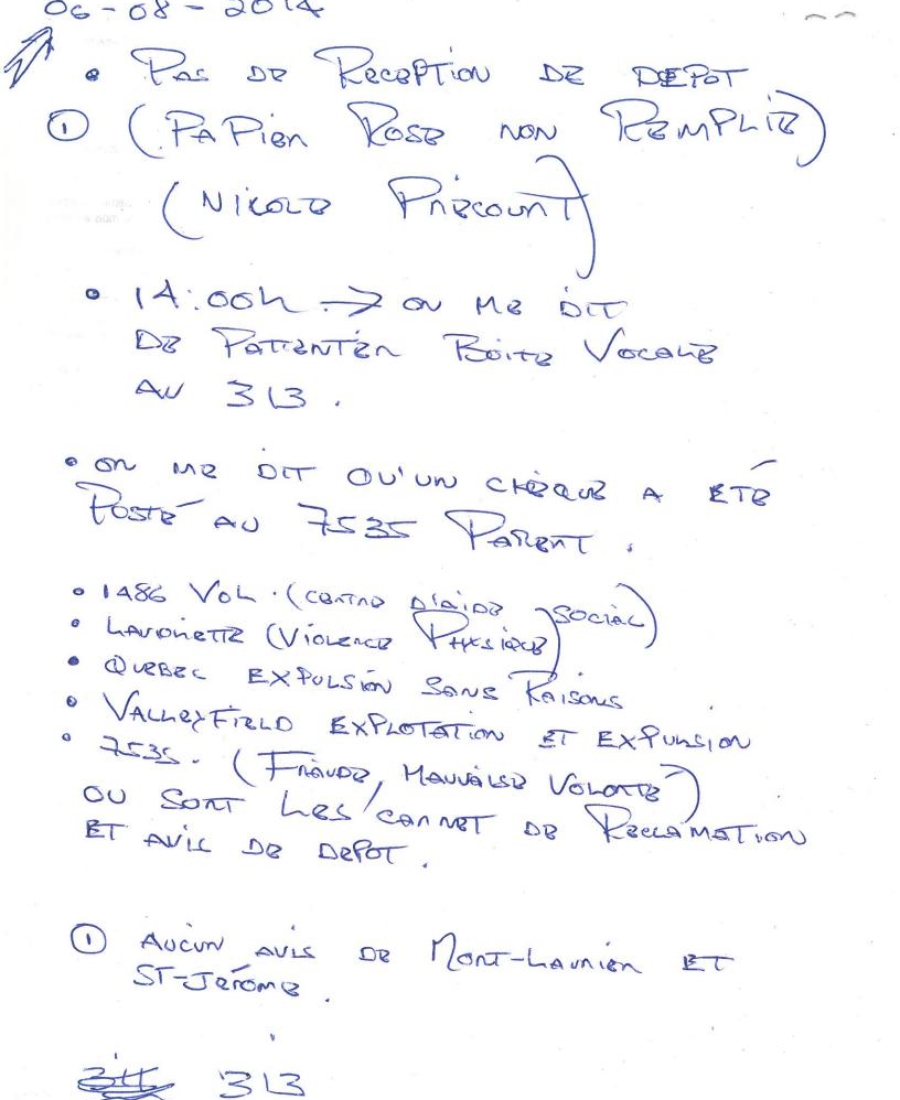 06-08-2014
• PAS DE RECEPTION DE DEPOT
① (PAPIER ROSE NON REMPLIE)
(NICOLE PRECOURT)
• 14:00h → ON ME DIT
DE PATIENTER BOITE VOCALE
AU 313.
• ON ME DIT QU'UN CHÈQUE A ÉTÉ
POSTÉ AU 7535 PARENT.
• 1486 VOL. (CENTRE D'AIDE SOCIAL)
• LAVIOLETTE (VIOLENCE PHYSIQUE)
• QUEBEC EXPULSION SANS RAISONS
• VALLEYFIELD EXPLOTATION ET EXPULSION
• 7535. (FRAUDE, MAUVAISE VOLONTÉ)
OU SONT LES CARNET DE RECLAMATION
ET AVIS DE DEPOT.
① AUCUN AVIS DE MONT-LAURIER ET
ST-JÉROME.
313